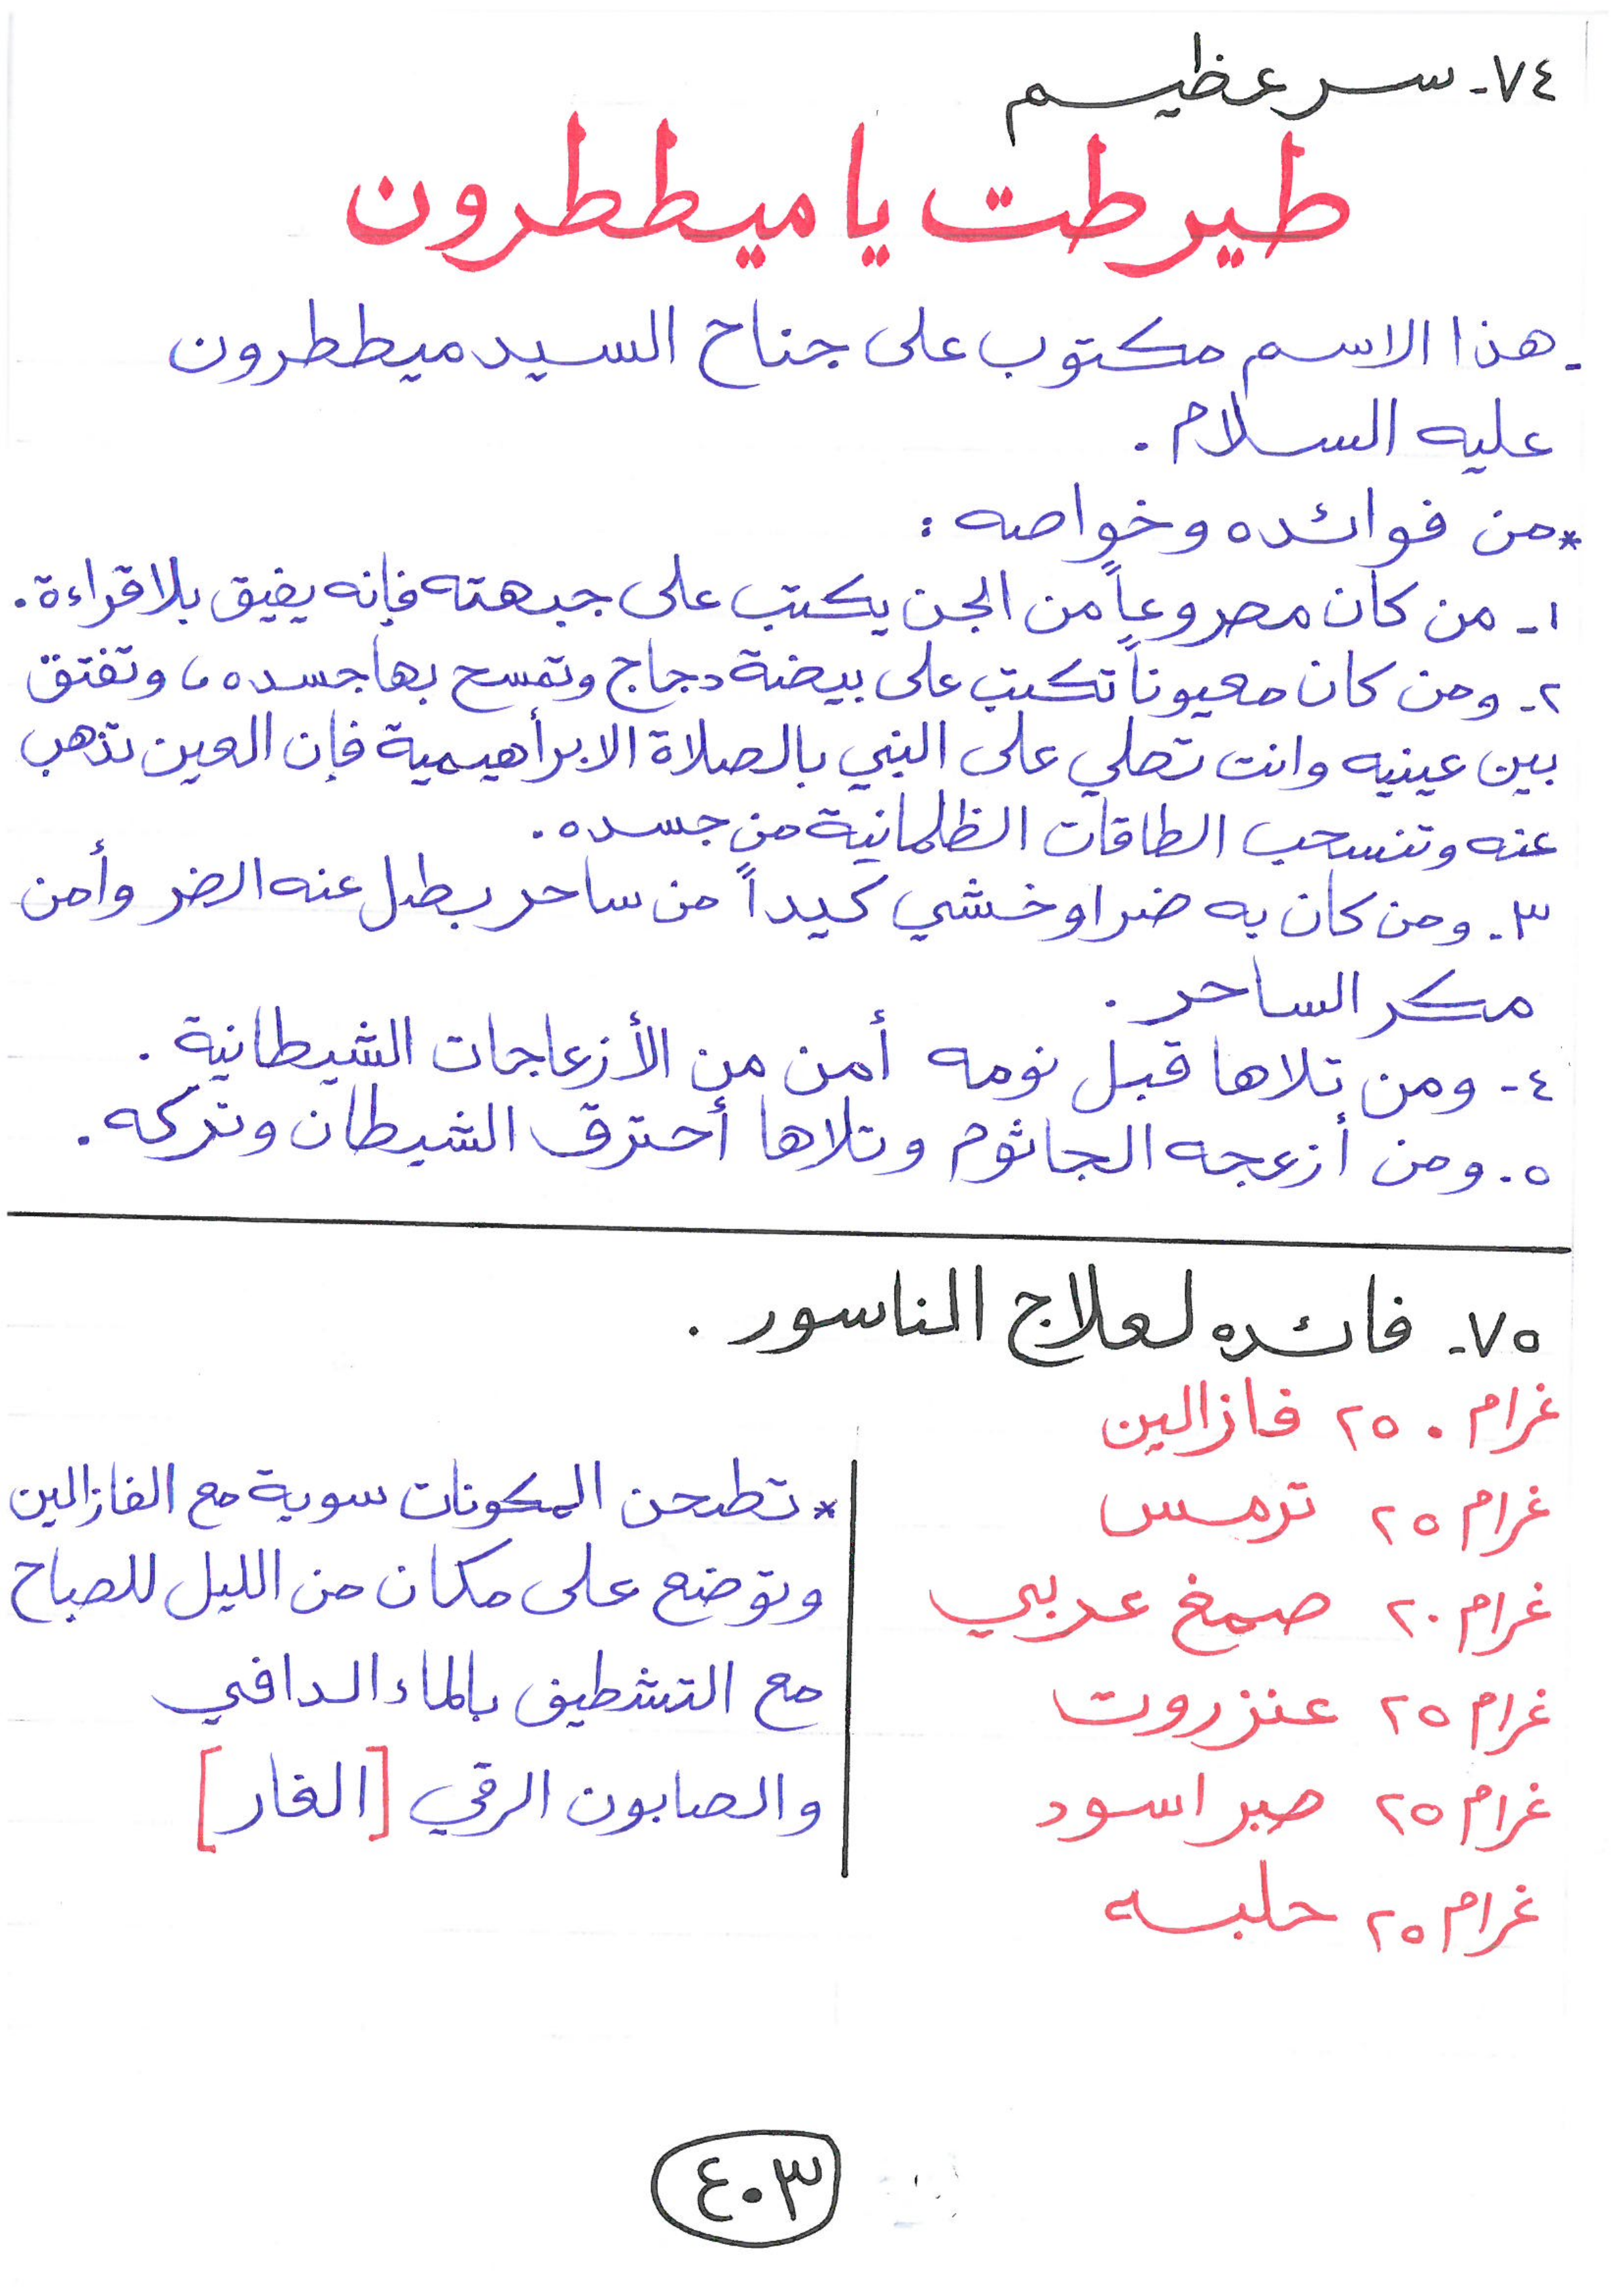 ٧٤- سر عظيم
طيرطت يا ميططرون
- هذا الاسم مكتوب على جناح السيد ميططرون
عليه السلام .
* من فوائده وخواصه :
١- من كان مصروعاً من الجن يكتب على جبهته فإنه يفيق بلا قراءة .
٢- ومن كان معيوناً تكتب على بيضة دجاج وتمسح بها جسده ، وتفتق
بين عينيه وانت تصلي على النبي بالصلاة الابرأهيمية فإن العين تذهب
عنه وتنسحب الطاقات الظلمانية من جسده .
٣- ومن كان به ضر او خشي كيداً من ساحر بطل عنه الضر وأمن
مكر الساحر .
٤- ومن تلاها قبل نومه أمن من الأزعاجات الشيطانية .
٥- ومن أزعجه الجاثوم وتلاها أحترق الشيطان وتركه .
٧٥- فائده لعلاج الناسور .
غرام ٢٥٠ فازالين
غرام ٢٥ ترمس
غرام ٢٠ صمغ عربي
غرام ٢٥ عنزروت
غرام ٢٥ صبر اسود
غرام ٢٥ حلبه
* تطحن المكونات سوية مع الفازالين
وتوضع على مكان من الليل للصباح
مع التشطيف بالماء الدافي
والصابون الرقي [الغار]
٤٠٣